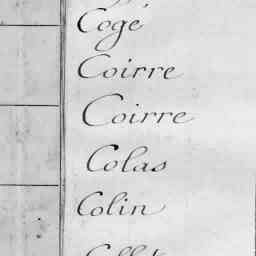 Cogé
Coirre
Coirre
Colas
Colin